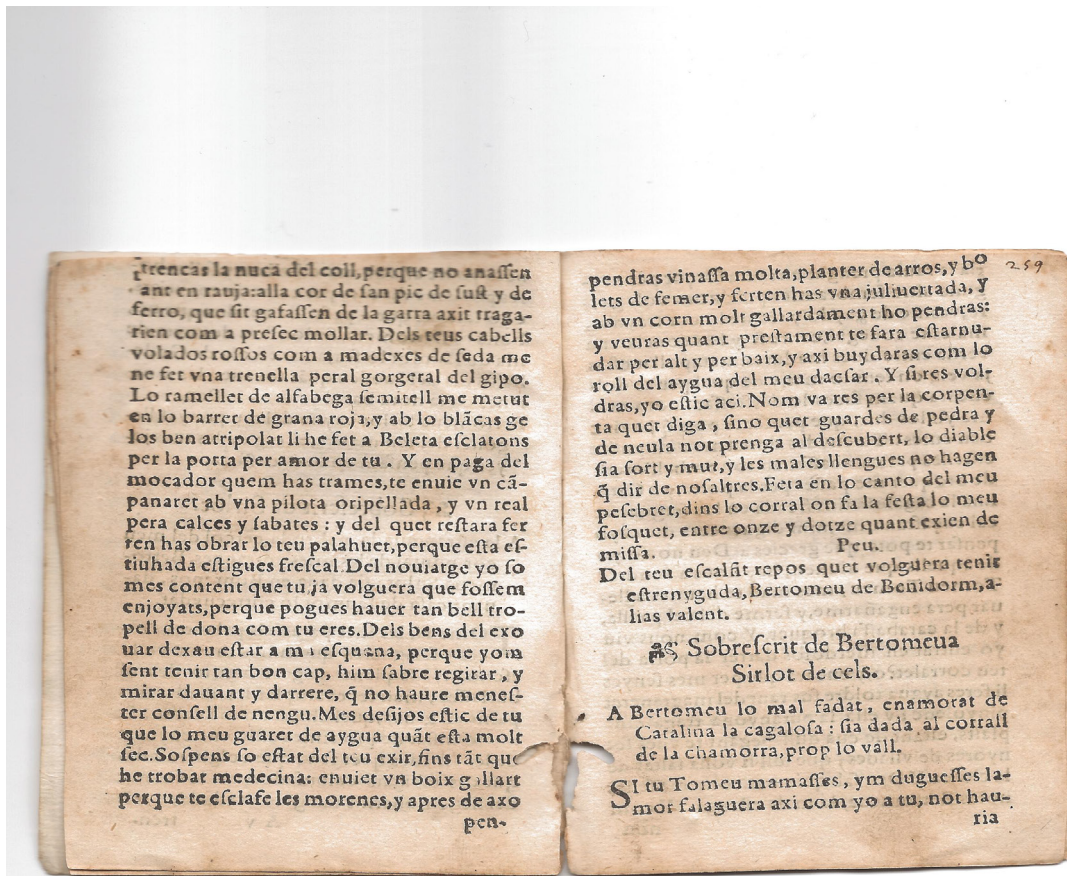 trencas la nuca del coll, perque no anaſſen
ant en rauja: alla cor de ſan pic de ſuſt y de
ferro, que ſit gafaſſen de la garra axit traga-
rien com a preſec mollar. Dels teus cabells
volados roſſos com a madexes de ſeda me
ne fet vna trenella peral gorgeral del gipo.
Lo ramellet de alfabega ſemitell me metut
en lo barret de grana roja, y ab lo blãcas ge
los ben atripolat li he fet a Beleta eſclatons
per la porta per amor de tu. Y en paga del
mocador quem has trames, te enuie vn cã-
panaret ab vna pilota oripellada, y vn real
pera calces y ſabates: y del quet reſtara fer
ten has obrar lo teu palahuet, perque eſta eſ-
tiuhada eſtigues freſcal. Del nouiatge yo ſo
mes content que tu, ja volguera que foſſem
enjoyats, perque pogues hauer tan bell tro-
pell de dona com tu eres. Dels bens del exo
uar dexau eſtar a mi eſquena, perque yom
ſent tenir tan bon cap, him ſabre regirar, y
mirar dauant y darrere, q̃ no haure meneſ-
ter conſell de nengu. Mes deſijos eſtic de tu
que lo meu guaret de aygua quãt eſta molt
ſec. Soſpens ſo eſtat del teu exir, fins tãt que
he trobat medecina: enuiet vn boix gallart
perque te eſclafe les morenes, y apres de axo
pen-
259
pendras vinaſſa molta, planter de arros, y bo
lets de femer, y ferten has vna juliuertada, y
ab vn corn molt gallardament ho pendras:
y veuras quant preſtament te fara eſtarnu-
dar per alt y per baix, y axi buydaras com lo
roll del aygua del meu dacſar. Y ſi res vol-
dras, yo eſtic aci. Nom va res per la corpen-
ta quet diga, ſino quet guardes de pedra y
de neula not prenga al deſcubert, lo diable
ſia ſort y mut, y les males llengues no hagen
q̃ dir de noſaltres. Feta en lo canto del meu
peſebret, dins lo corral on fa la feſta lo meu
foſquet, entre onze y dotze quant exien de
miſſa. Peu.
Del teu eſcalfãt repos quet volguera tenir
eſtrenyguda, Bertomeu de Benidorm, a-
lias valent.
Sobreſcrit de Bertomeua
Sirlot de cels.
A Bertomeu lo mal fadat, enamorat de
Catalina la cagaloſa: ſia dada al corrall
de la chamorra, prop lo vall.
SI tu Tomeu mamaſſes, ym dugueſſes la-
mor falaguera axi com yo a tu, not hau-
ria